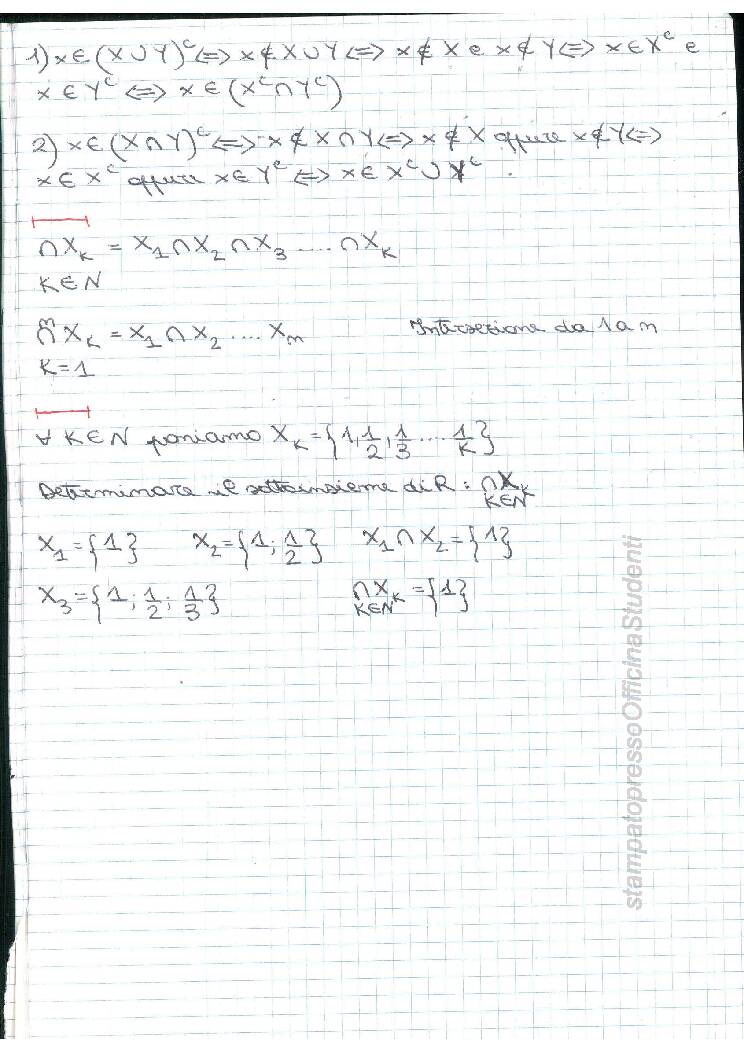 1) x ∈ (X ∪ Y)ᶜ ⟺ x ∉ X ∪ Y ⟺ x ∉ X e x ∉ Y ⟺ x ∈ Xᶜ e
x ∈ Yᶜ ⟺ x ∈ (Xᶜ ∩ Yᶜ)
2) x ∈ (X ∩ Y)ᶜ ⟺ x ∉ X ∩ Y ⟺ x ∉ X oppure x ∉ Y ⟺
x ∈ Xᶜ oppure x ∈ Yᶜ ⟺ x ∈ Xᶜ ∪ Yᶜ .
∩ X_K = X_1 ∩ X_2 ∩ X_3 .... ∩ X_K
K ∈ N
n
∩ X_K = X_1 ∩ X_2 .... X_n Intersezione da 1 a n
K = 1
∀ K ∈ N poniamo X_K = {1, 1/2, 1/3 .... 1/K}
Determinare il sottoinsieme di R : ∩ X_K
K ∈ N
X_1 = {1} X_2 = {1; 1/2} X_1 ∩ X_2 = {1}
X_3 = {1; 1/2; 1/3} ∩ X_K = {1}
K ∈ N
stampatopressoOfficinaStudenti